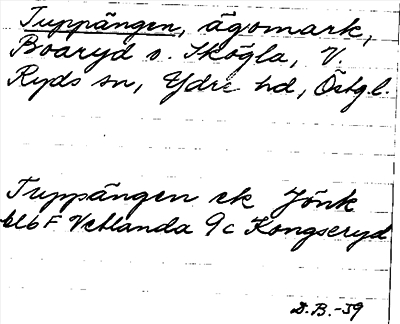 Tuppängen, ägomark,
Boaryd o. Skögla, V.
Ryds sn, Ydre hd, Östgl.
Tuppängen ek Jönk
bl 6 F Vetlanda 9c Kongseryd
D.B.-39